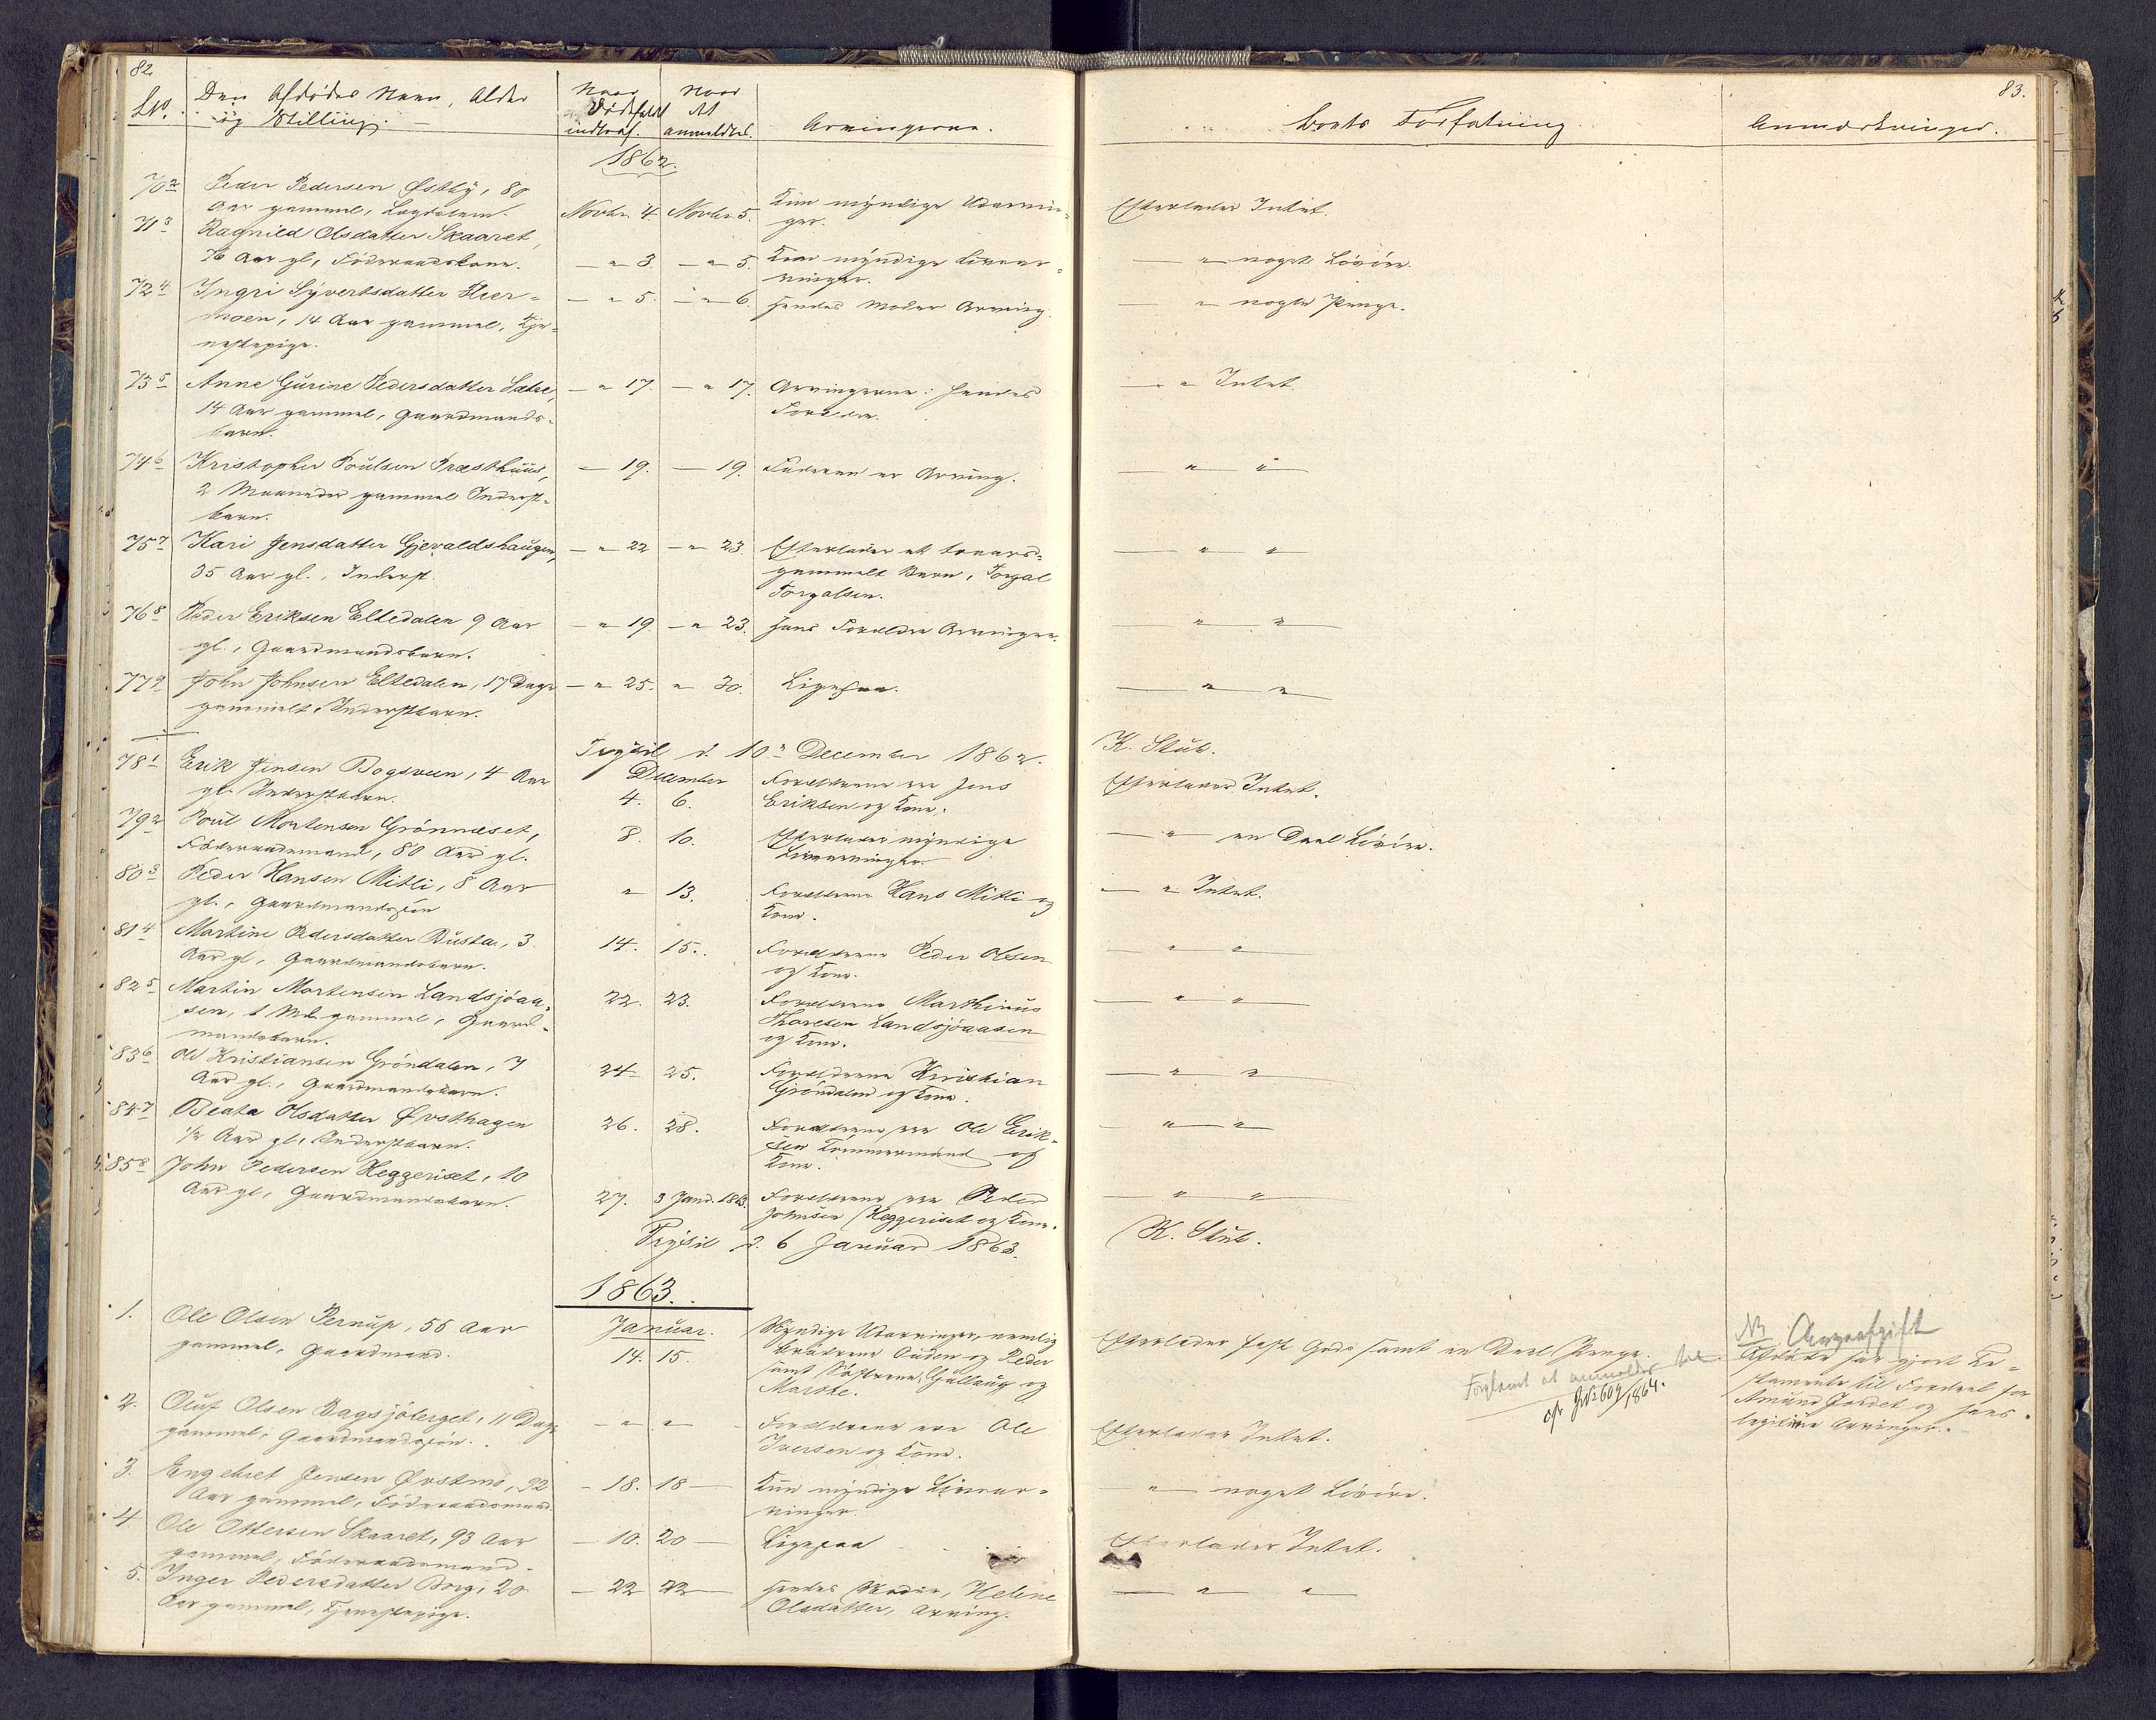 82.
No. Den Afdødes Navn, Alder
og Stilling.
Naar
Dødsfald
indtraf.
Naar
At
anmeldtes.
Arvingerne.
1862.
70 2 Peder Pedersen Østby, 80
Aar gammel, Lægdslem. Novbr. 4. Novbr. 5. Kun myndige Udarvin-
ger.
71 3 Ragnild Olsdatter Skaaret,
76 Aar gl, Föderaadskone. — " 3 — " 5. Kun myndige Livsar-
vinger.
72 4 Ingri Syvertsdatter Heer- — " 5. — " 6. Hendes Moder Arving.
moen, 14 Aar gammel, Tje-
nestepige.
73 5 Anne Gurine Pedersdatter Sætre, — " 17. — " 17. Arvingerne: Hendes
14 Aar gammel, Gaardmands- Forældre.
barn.
74 6 Kristopher Poulsen Præsthuus, — 19. — 19. Faderen er Arving.
2 Maaneder gammel Inderst-
barn.
75 7 Kari Jensdatter Gjeraldshaugen, — " 22 — " 23 Efterlader et toaars-
35 Aar gl., Inderst. gammelt Barn, Torgal
Torgalsen.
76 8 Peder Eriksen Eltedalen 9 Aar — " 19 — " 23. Hans Forældre Arvinger.
gl., Gaardmandsbarn.
77 9 John Johnsen Eltedalen, 17 Dage — " 25. " 30. Ligesaa.
gammelt, Inderstbarn.
Trysil d. 10 December 1862.
78 1 Erik Jensen Bogsveen, 4 Aar December Forældrene ere Jens
gl. Inderstbarn. 4. 6. Eriksen og Kone.
79 2 Poul Mortensen Grönnæset, 8. 10. Efterlader myndige
Föderaadsmand, 80 Aar gl. Livsarvinger.
80 3 Peder Hansen Mitli, 8 Aar " 13. Forældrene Hans Mitli og
gl., Gaardmandssön Kone.
81 4 Martine Pedersdatter Rusta, 3 14. 15. Forældrene Peder Olsen
Aar gl, Gaardmandsbarn. og Kone.
82 5 Martin Mortensen Landsjöaa- 22. 23. Forældrene Marthinus
sen, 1 Md. gammel, Gaard- Thoresen Landsjöaasen
mandsbarn. og Kone.
83 6 Ole Kristiansen Gröndalen, 7 24 25. Forældrene Kristian
Aar gl., Gaardmandsbarn. Gröndalen og Kone.
84 7 Beata Olsdatter Øvsthagen 26. 28. Forældrene ere Ole Erik-
1/2 Aar gl, Inderstbarn. sen Tömmermand og
Kone.
85 8 John Pedersen Heggeriset, 10
Aar gl, Gaardmandsbarn. 27. 3 Janr. 1863. Forældrene ere Peder
Johnsen Heggeriset og Kone.
Trysil d. 6 Januar 1863.
1863.
1. Ole Olsen Pernup, 56 Aar Januar. Myndige Udarvinger, nemlig
gammel, Gaardmand. 14. 15. Brödrene Ouden og Peder
samt Söstrene, Gullaug og
Marthe.
2. Oluf Olsen Bagsjöberget, 11 Dage — " " — Forældrene ere Ole
gammel, Gaardmandssön. Iversen og Kone.
3. Engebret Jensen Øvstmo, 92 — 18. 18 — Kun myndige Livsar-
Aar gammel, Föderaadsmand vinger.
4. Ole Ottersen Skaaret, 93 Aar — 10. 20 — Ligesaa
gammel, Föderaadsmand.
5. Inger Pedersdatter Borg, 20 — 22 22 — Hendes Moder, Helene
Aar gammel, Tjenestepige. Olsdatter, Arving.
83.
Boets Forfatning. Anmærkninger.
Efterlader Intet.
— " — noget Lösöre.
— " — nogle Penge.
— " Intet.
— " "
— " "
— " "
— " "
K. Stub.
Efterlader Intet.
— " — en Deel Lösöre.
— " Intet.
— " "
— " "
— " "
— " "
— " "
K. Stub.
Efterlader fast Gods samt en Deel Penge.
cfr JNo 609/1864.
NB Arveafgift
Afdöde har gjort Te-
stamente til Fordeel for
Amund Jordet og hans
legitime Arvinger.
Efterlader Intet.
" — noget Lösöre.
Efterlader Intet.
— " "